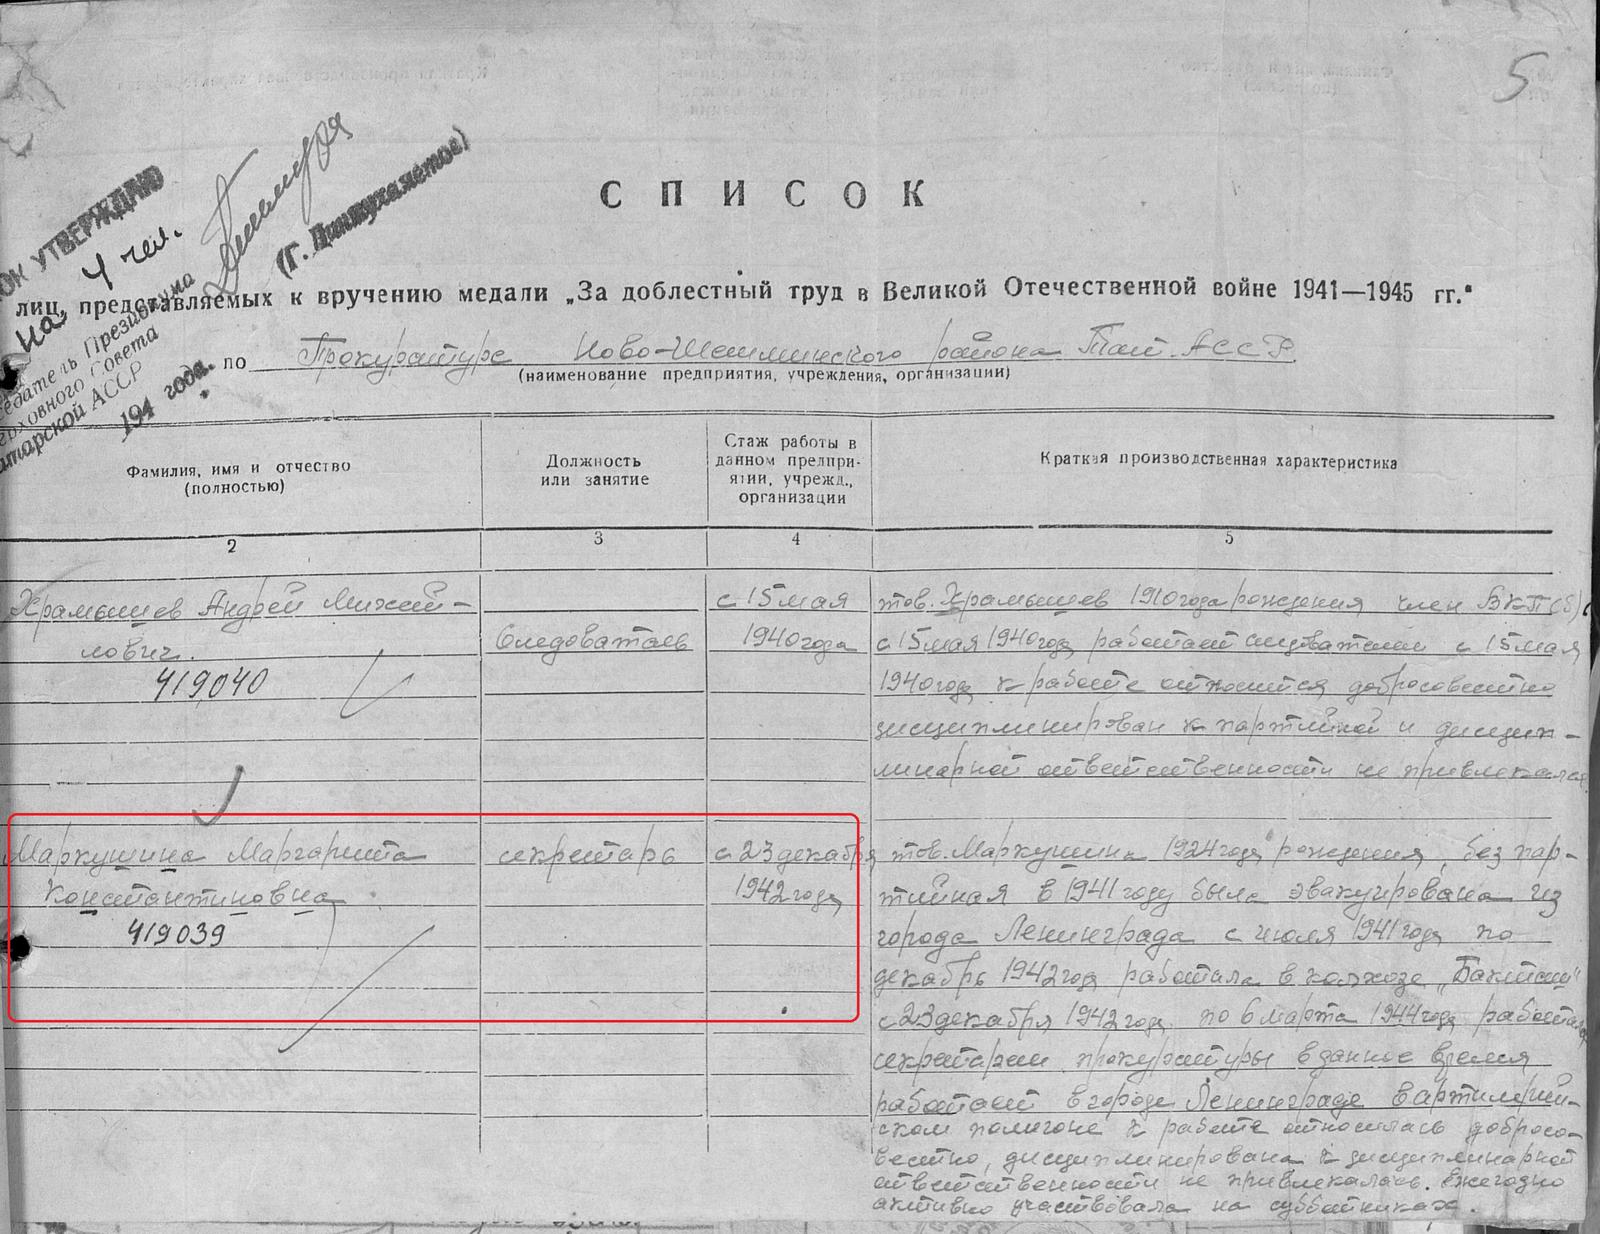 5
УТВЕРЖДАЮ
4 чел.
(Г. Динмухаметов)
Президиума
Верховного Совета
Татарской АССР
194 года.
СПИСОК
лиц, представляемых к вручению медали „За доблестный труд в Великой Отечественной войне 1941—1945 гг."
по Прокуратуре Ново-Шешминского района Тат. АССР
(наименование предприятия, учреждения, организации)
Фамилия, имя и отчество
(полностью)
Должность
или занятие
Стаж работы в
данном предпри-
ятии, учрежд.,
организации
Краткая производственная характеристика
2
3
4
5
Храмышев Андрей Михай-
лович.
419040
Следователь
с 15 мая
1940 года
тов. Храмышев 1910 года рождения член ВКП(б)
с 15 мая 1940 год работает следователем с 15 мая
1940 год к работе относится добросовестно
дисциплинирован к партийной и дисцип-
линарной ответственности не привлекался
Маркушина Маргарита
Константиновна
419039
секретарь
с 23 декабря
1942 года
тов. Маркушина 1924 года рождения, безпар-
тийная в 1941 году была эвакуирована из
города Ленинграда с июля 1941 год по
декабрь 1942 год работала в колхозе
с 23 декабря 1942 год по 6 марта 1944 год работала
секретарем прокуратуры в данное время
работает в городе Ленинграде в артилерий-
ском полигоне к работе относилась добросо-
вестно, дисциплинирована к дисциплинарной
ответственности не привлекалась. Ежегодно
активно участвовала на субботниках.